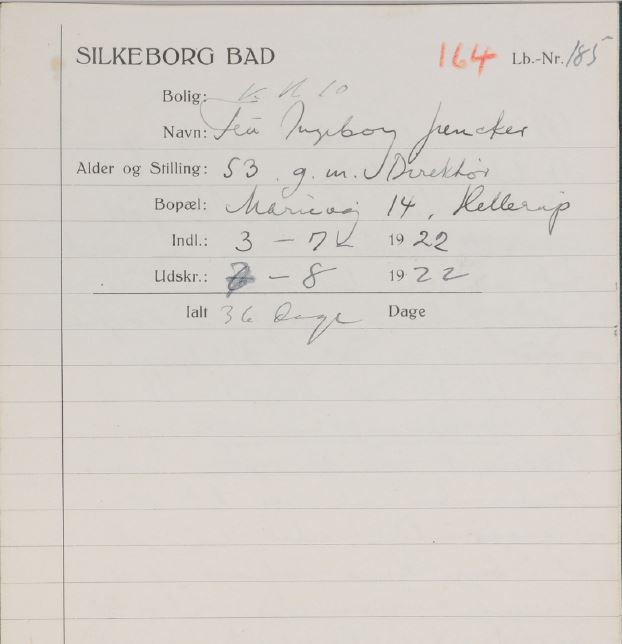 SILKEBORG BAD 164 Lb.-Nr. 185
Bolig: K. N. 10
Navn: Fru Ingeborg
Alder og Stilling: 53 g. m. Direktør
Bopæl: Marievej 14, Hellerup
Indl.: 3 - 7 1922
Udskr.: - 8 1922
Ialt 36 Dage Dage